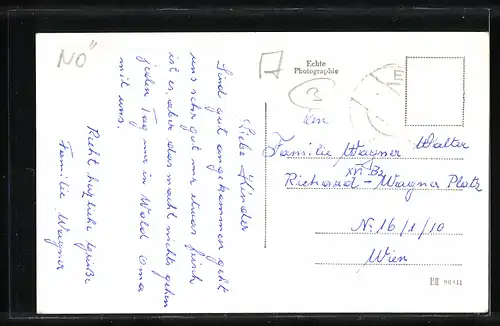 NÖ
Echte
Photographie
Liebe Kinder
Sind gut angekommen geht
uns sehr gut nur etwas frisch
ist es, aber das macht nichts gehen
jeden Tag nur in Wald Oma
mit uns.
Recht herzliche Grüße
Familie Wagner
An
Familie Wagner Walter
XVI Bz
Richard-Wagner Platz
Nr. 16/1/10
Wien